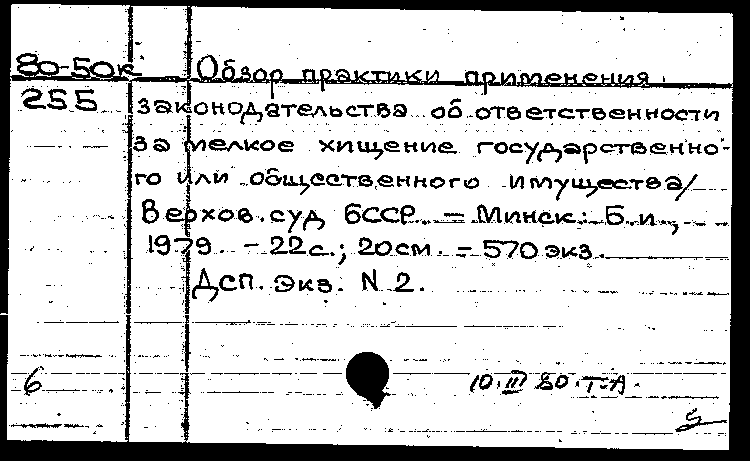 80-50к Обзор практики применения
255 законодательства об ответственности
за мелкое хищение государственно-
го или общественного имущества/
Верхов. суд БССР. – Минск: Б.и.,
1979. – 22с.; 20см. – 570 экз.
Дсп. Экз. N 2.
6 10.III 80.Т.А.